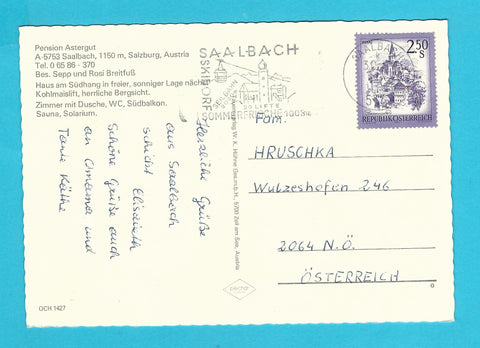 Pension Astergut
A-5753 Saalbach, 1150 m, Salzburg, Austria
Tel. 0 65 86 - 370
Bes. Sepp und Rosi Breitfuß
Haus am Südhang in freier, sonniger Lage nächst
Kohlmaislift, herrliche Bergsicht.
Zimmer mit Dusche, WC, Südbalkon.
Sauna, Solarium.
Herzliche Grüße
aus Saalbach
schickt Elisabeth
Schöne Grüße auch
an Omama und
Tante Käthe
OCH 1427
SAALBACH
SKIDORF
40 LIFTE
SOMMERFRISCHE 1003m
W. K. Höhne Ges.m.b.H., 5700 Zell am See, Austria
SAALBACH
2.50
S
REPUBLIK ÖSTERREICH
Fam.
HRUSCHKA
Wulzeshofen 246
2064 N.Ö.
ÖSTERREICH